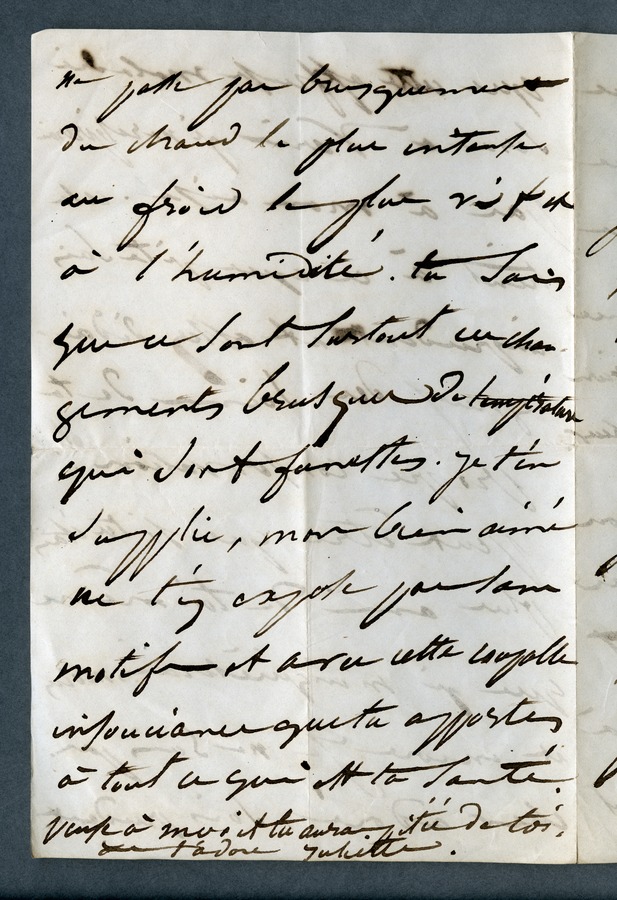 ne passe pas brusquement
du chaud le plus intense
au froid le plus vif et
à l'humidité. tu sais
que ce sont surtout ces chan-
gements brusques de température
qui sont funestes. je t'en
supplie, mon bien aimé
ne t'y expose pas sans
motifs et avec cette coupable
insouciance que tu apportes
à tout ce qui est ta santé.
pense à moi et tu auras pitié de toi.
je t'adore Juliette.